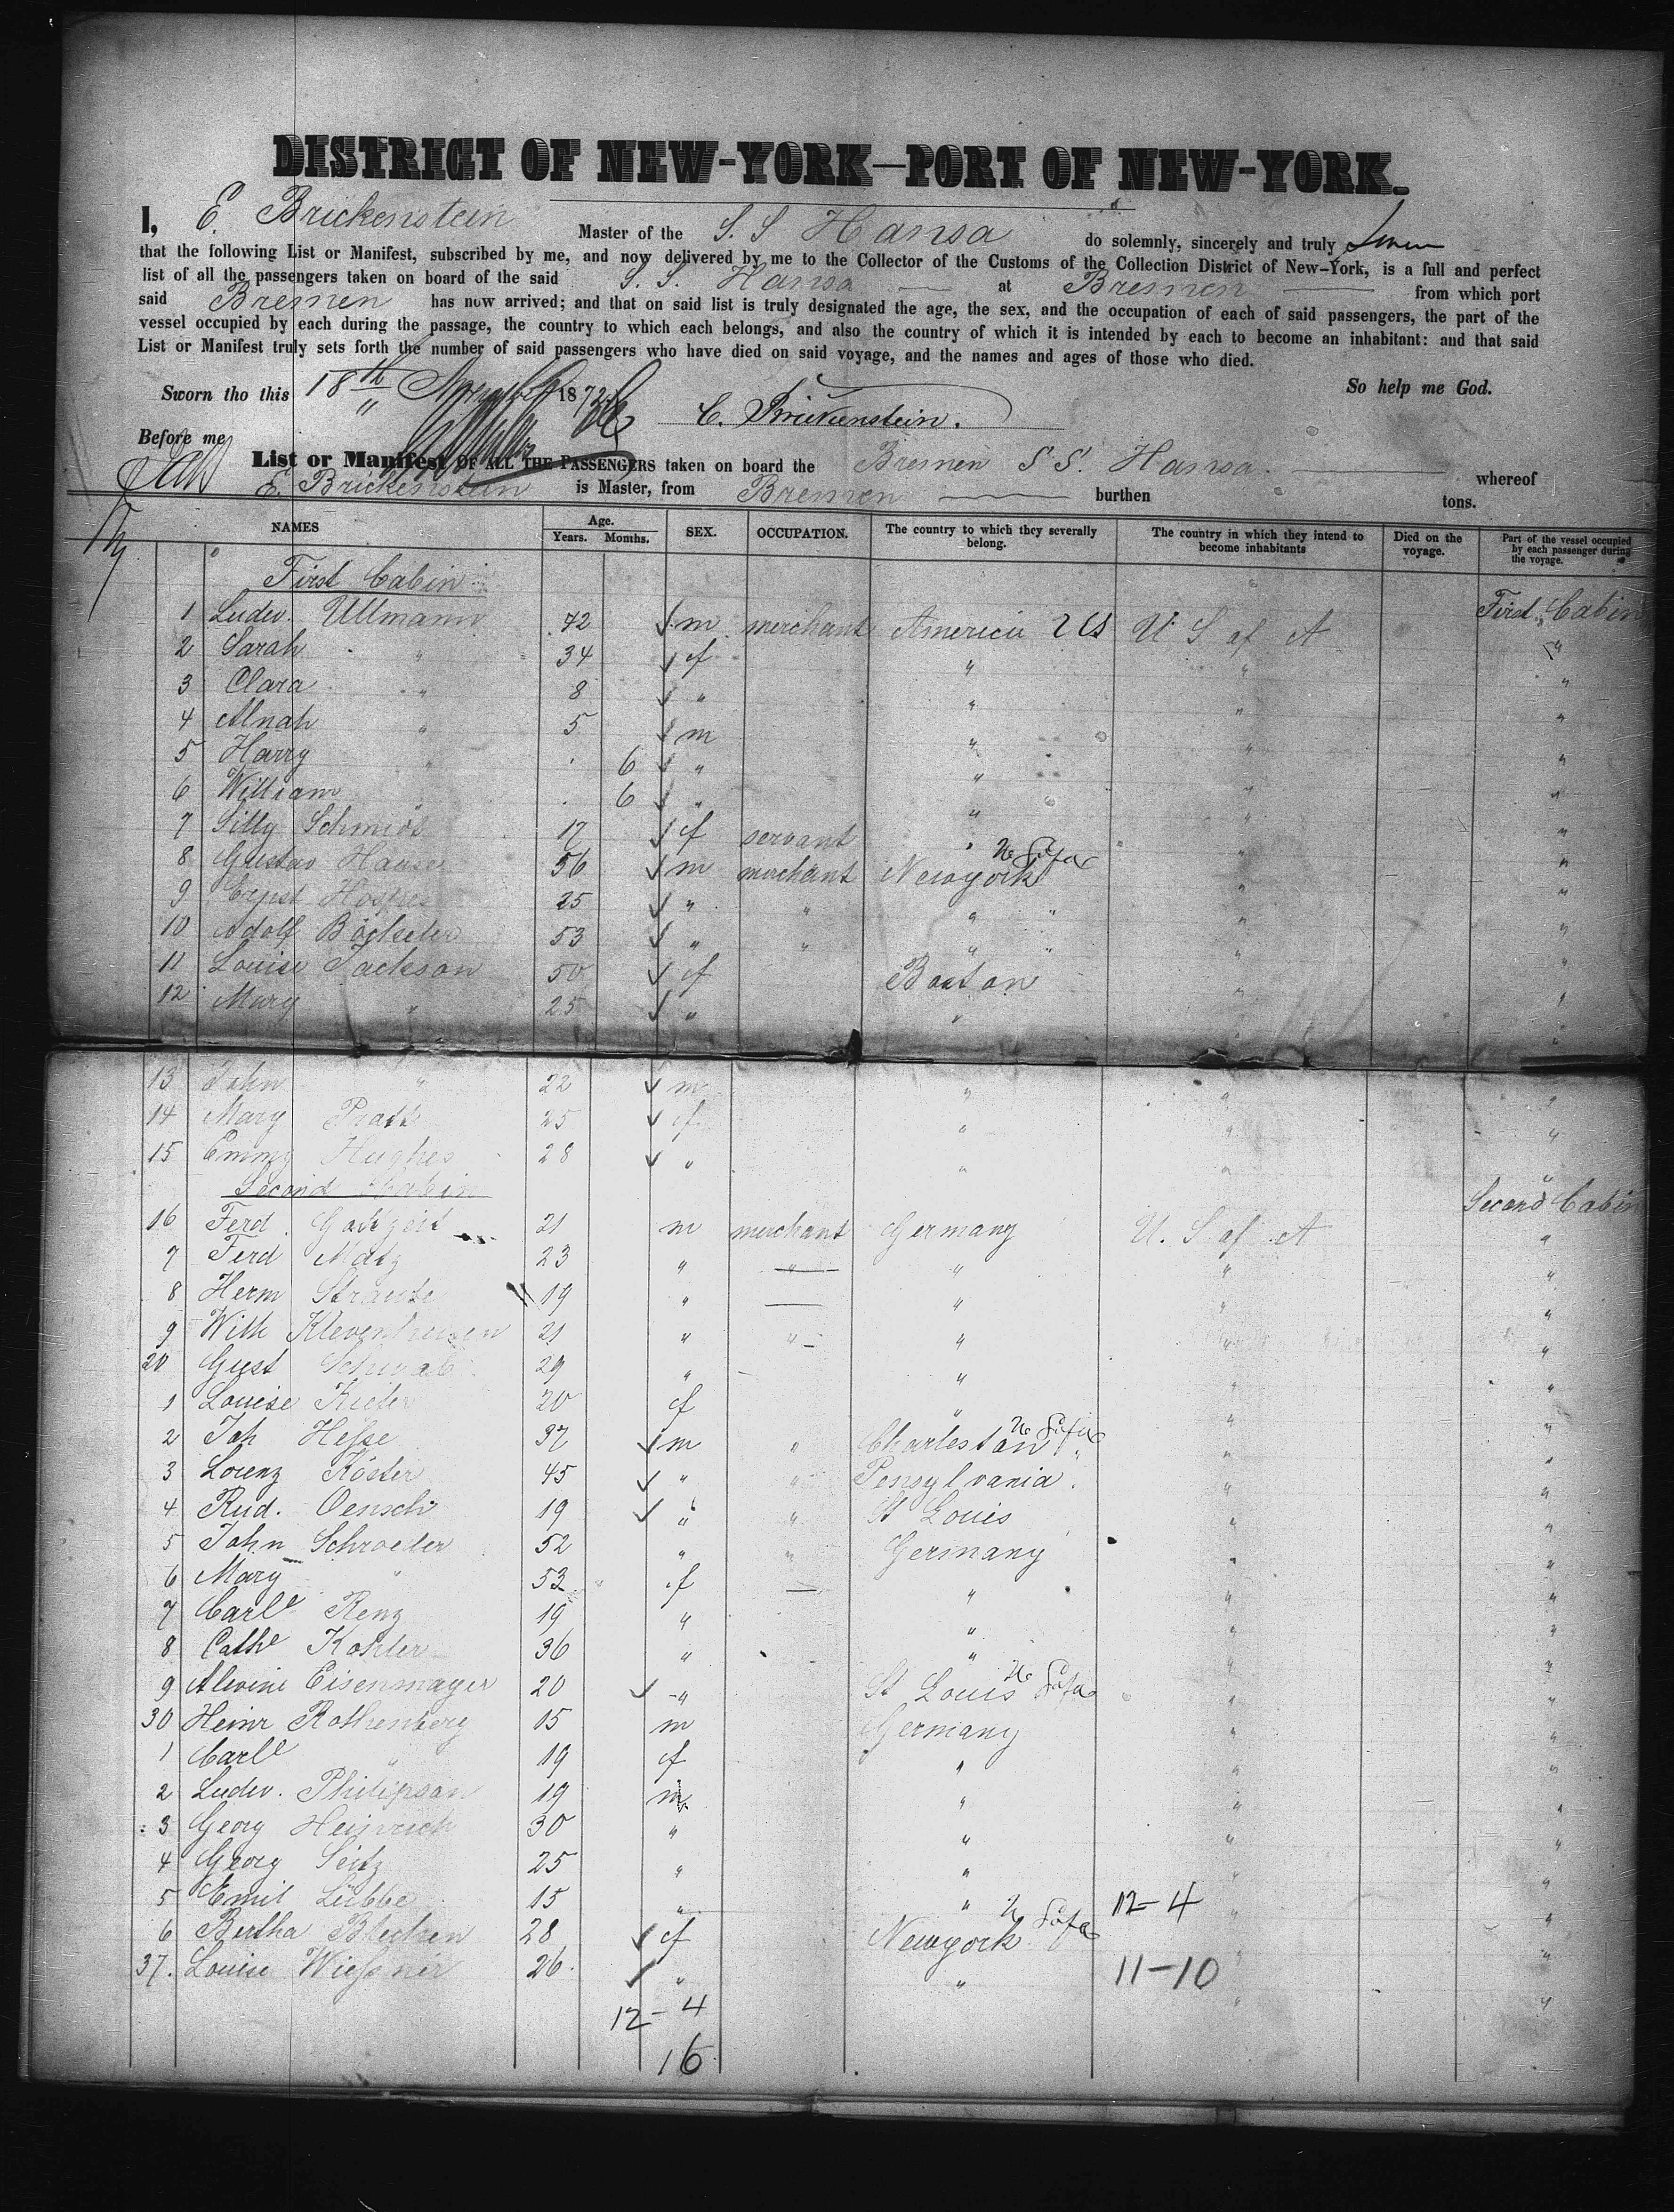 DISTRICT OF NEW-YORK—PORT OF NEW-YORK.
I, E. Brickenstein Master of the S. S Hansa do solemnly, sincerely and truly
that the following List or Manifest, subscribed by me, and now delivered by me to the Collector of the Customs of the Collection District of New-York, is a full and perfect
list of all the passengers taken on board of the said S. S. Hansa — at Bremen — from which port
said Bremen has now arrived; and that on said list is truly designated the age, the sex, and the occupation of each of said passengers, the part of the
vessel occupied by each during the passage, the country to which each belongs, and also the country of which it is intended by each to become an inhabitant: and that said
List or Manifest truly sets forth the number of said passengers who have died on said voyage, and the names and ages of those who died.
Sworn tho this 18th 1872 So help me God.
E. Brickenstein.
Before me
List or Manifest OF ALL THE PASSENGERS taken on board the Bremen S. S. Hansa. — whereof
E. Brickenstein is Master, from Bremen — burthen tons.
NAMES Age. Years. Months. SEX. OCCUPATION. The country to which they severally belong. The country in which they intend to become inhabitants Died on the voyage. Part of the vessel occupied by each passenger during the voyage.
First Cabin
1 Ludw. Ullmann 42 m merchant America US U S of A First Cabin
2 Sarah " 34 f " " "
3 Clara " 8 " " " "
4 Alnah " 5 m " " "
5 Harry " 6 " " " "
6 William " 6 " " " "
7 Lilly Schmidt 17 f servant " " "
8 Gustav Hause 56 m merchant Newyork " "
9 Ernst 25 " " " " "
10 Adolf 53 " " " " "
11 Louise Jackson 50 f Boston " "
12 Mary " 25 " " " "
13 John " 22 m " " "
14 Mary Pratt 25 f " " "
15 Emmy Hughes 28 " " " "
Second Cabin
16 Ferd. 21 m merchant Germany U. S of A Second Cabin
7 Ferd Matz 23 " " " " "
8 Herm 19 " — " " "
9 Wilh 21 " " " " "
20 Gust Schwab 29 " " " "
1 Louise 20 f " " "
2 Joh Hesse 37 m " Charleston " "
3 Lorenz Köster 45 " " Pensylvania. " "
4 Rud. Oensch 19 " " St Louis " "
5 John Schroeder 52 " " Germany " "
6 Mary " 53 f — " " "
7 Carle Renz 19 " " " "
8 Cathe Kohler 36 " " " "
9 Alwine Eisenmayer 20 " St Louis " "
30 Heinr Rothenberg 15 m Germany " "
1 Carle " 19 f " " "
2 Ludw. Philipson 19 m " " "
3 Georg Heinrich 30 " " " "
4 Georg Seitz 25 " " " "
5 Emil Lübbe 15 " " 12-4 " "
6 Bertha Blechen 28 f Newyork " "
37. Louise Wiessner 26. " " 11-10 " "
12-4
16